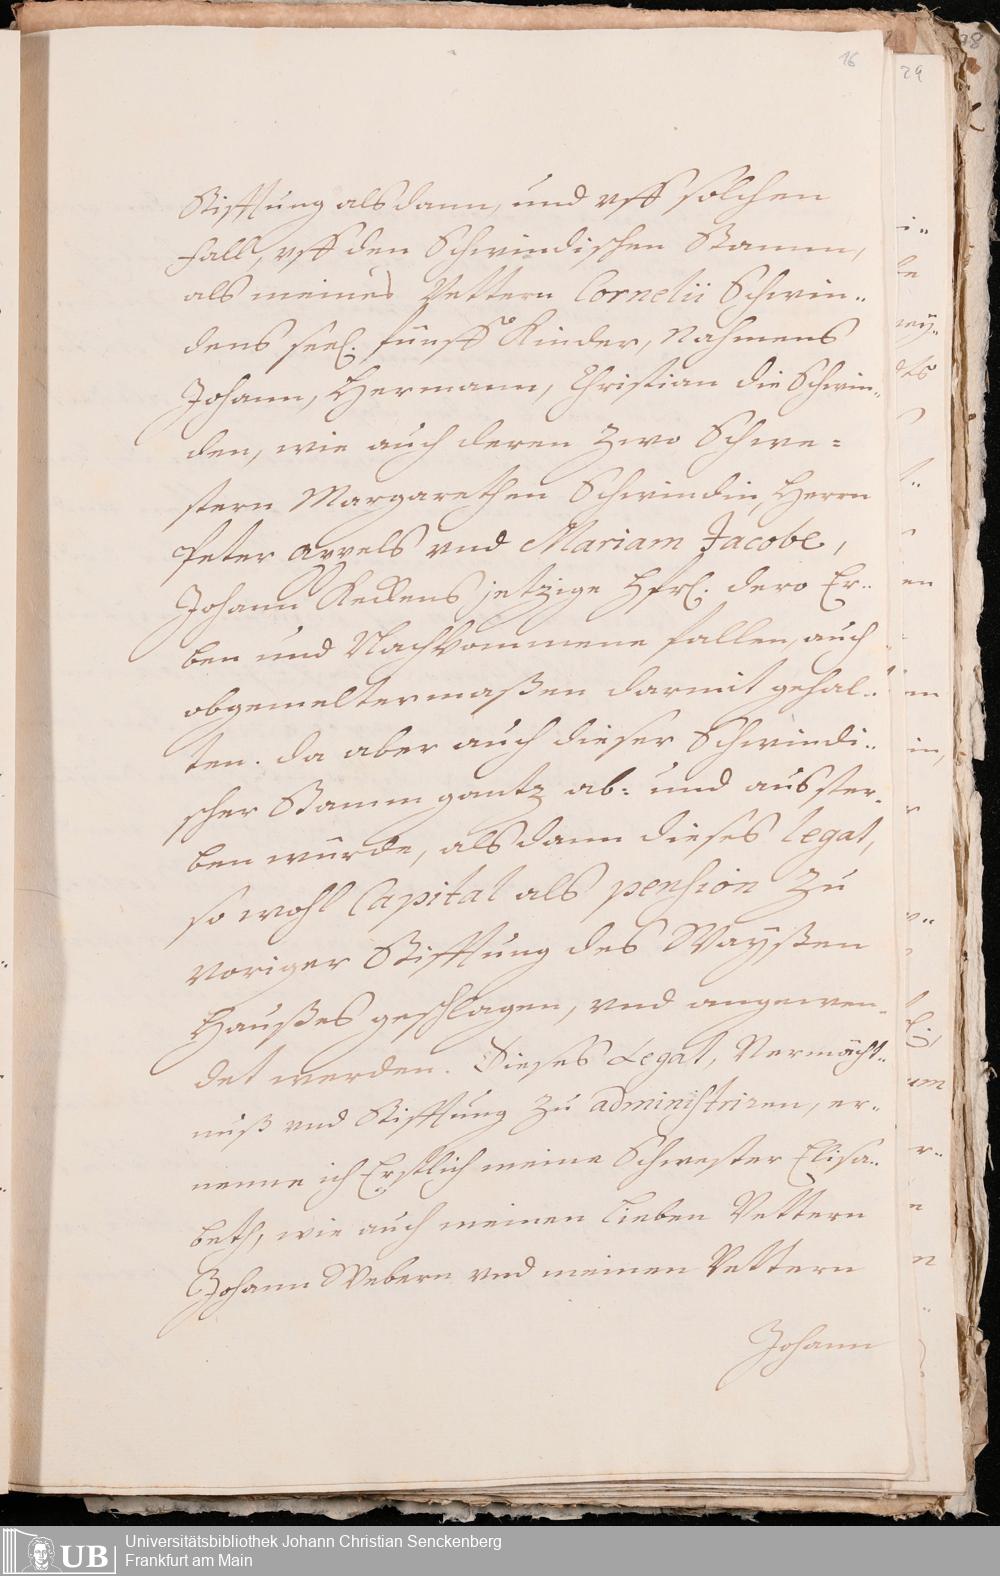 16
29
Stifftung alsdann, und vff solchen
fall, vff den Schwindischen Stamm,
als meines Vettern Cornelii Schwin¨
dens seel. fünff Kinder, Nahmens
Johann, Hermann, Christian die Schwin¨
den, wie auch deren zwo Schwe=
stern Margarethen Schwindin, Herrn
Peter arvels vnd Mariam Jacobe,
Johann Keckens jetzige Hfr. dero Er¨
ben und Nachkommene fallen, auch
obgemeltermaßen darmit gehal¨
ten. da aber auch dieser Schwindi¨
scher Stamm gantz ab= und ausster¨
ben würde, alsdann dieses legat,
so wohl Capital als pension zu
voriger Stifftung des Waysßen
Haußes geschlagen, vnd angewen¨
det werden. Dieses Legat, Vermächt¨
nuß vnd Stifftung zu administriren, er¨
nenne ich Erstlich meine Schwester Elisa¨
beth, wie auch meinen lieben Vettern
Johann Webern vnd meinen Vettern
Johann
UB Universitätsbibliothek Johann Christian Senckenberg
Frankfurt am Main